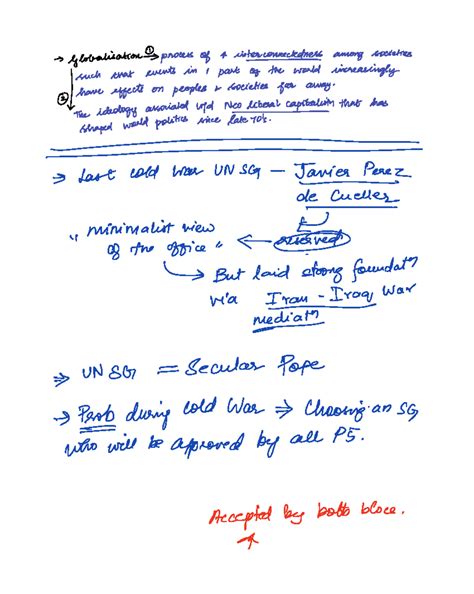 → Globalisation ① → process of ↑ interconnectedness among societies
such that events in 1 part of the world increasingly
have effects on peoples & societies far away.
② The ideology associated w/d Neo liberal capitalism that has
shaped world politics since late 70's.
→ Last cold war UNSG — Javier Perez
de Cueller
"minimalist view ← reserved
of the office"
→ But laid strong foundatn
via Iran - Iraq war
mediatn
→ UNSG = Secular Pope
→ Prob during cold war ⇒ Choosing an SG
who will be approved by all P5.
Accepted by both blocs.